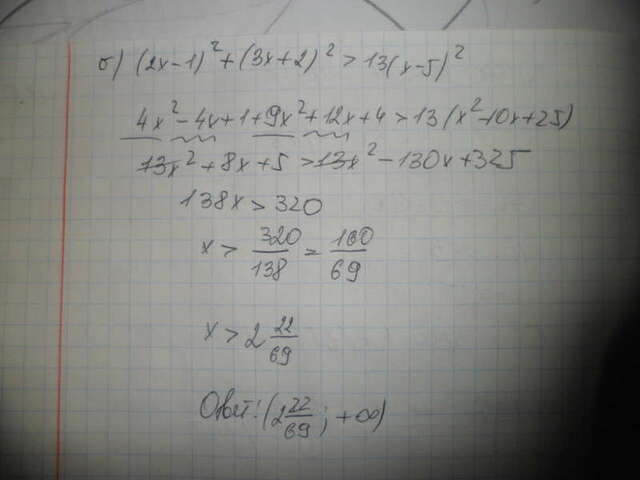 б) (2x-1)² + (3x+2)² > 13(x-5)²
4x² - 4x + 1 + 9x² + 12x + 4 > 13(x² - 10x + 25)
13x² + 8x + 5 > 13x² - 130x + 325
138x > 320
x > 320/138 = 160/69
x > 2 22/69
Ответ: (2 22/69; +∞)